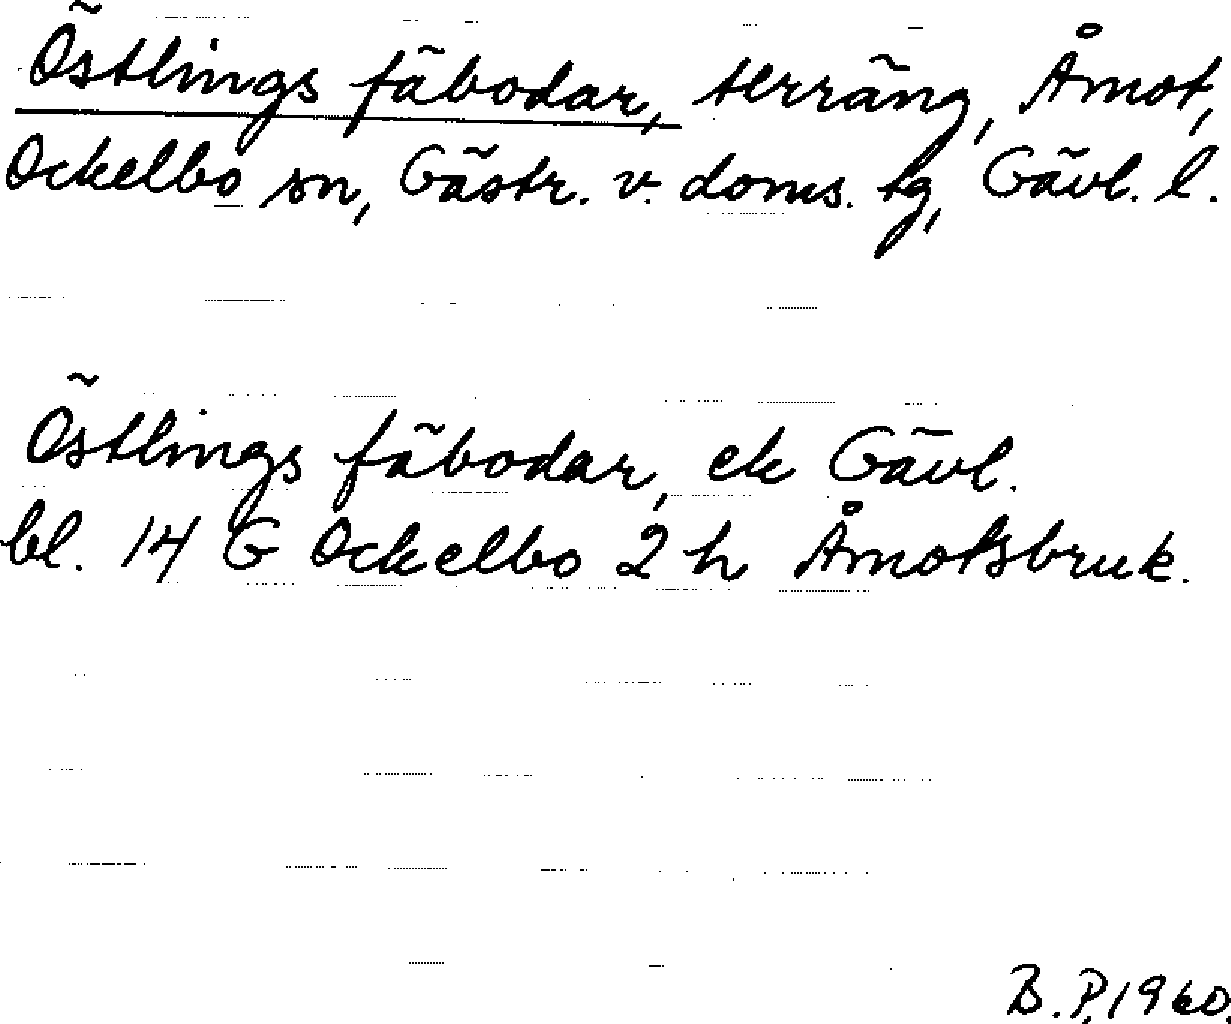 Östlings fäbodar, terräng, Åmot,
Ockelbo sn, Gästr. v. doms. tg, Gävl. l.
Östlings fäbodar, ek Gävl.
bl. 14 G Ockelbo 2 h Åmotsbruk.
B.P. 1960.